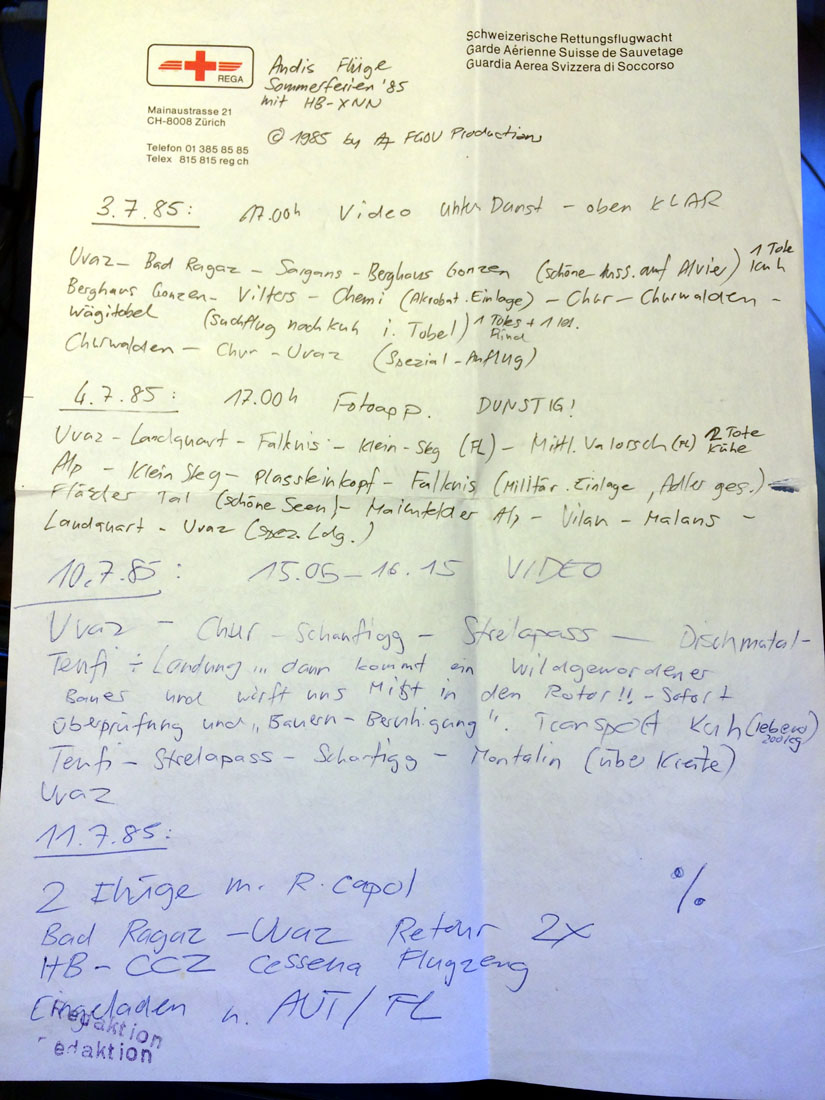 Schweizerische Rettungsflugwacht
Garde Aérienne Suisse de Sauvetage
Guardia Aerea Svizzera di Soccorso
REGA
Mainaustrasse 21
CH-8008 Zürich
Telefon 01 385 85 85
Telex 815 815 reg ch
Andis Flüge
Sommerferien '85
mit HB-XNN
© 1985 by FGOV Productions
3.7.85: 17.00h Video unten Dunst - oben KLAR
Uvaz - Bad Ragaz - Sargans - Berghaus Gonzen (schöne Auss. auf Alvier) 1 Tote Kuh
Berghaus Gonzen - Vilters - Chemi (Akrobat. Einlage) - Chur - Churwalden -
Wägitobel (Suchflug nach Kuh i. Tobel) 1 Totes + 1 leb. Rind
Churwalden - Chur - Uvaz (Spezial-Anflug)
4.7.85: 17.00h Fotoapp. DUNSTIG!
Uvaz - Landquart - Falknis - Klein-Steg (FL) - Mittl. Valorsch (FL) 2 Tote Kühe
Alp - Klein Steg - Plassteinkopf - Falknis (Militär. Einlage, Adler ges.)
Fläscher Tal (schöne Seen) - Maienfelder Alp - Vilan - Malans -
Landquart - Uvaz (Spez. Ldg.)
10.7.85: 15.05-16.15 VIDEO
Uvaz - Chur - Schanfigg - Strelapass - Dischmatal -
Teufi ÷ Landung... dann kommt ein Wildgewordener
Bauer und wirft uns Mist in den Rotor!! - Sofort
Überprüfung und "Bauern-Beruhigung". Transport Kuh (lebend) 200kg
Teufi - Strelapass - Schanfigg - Montalin (über Krete)
Uvaz
11.7.85:
2 Flüge m. R. Capol
Bad Ragaz - Uvaz Retour 2x
HB-CCZ Cessena Flugzeug
Eingeladen n. AUT/FL
%
Redaktion
edaktion